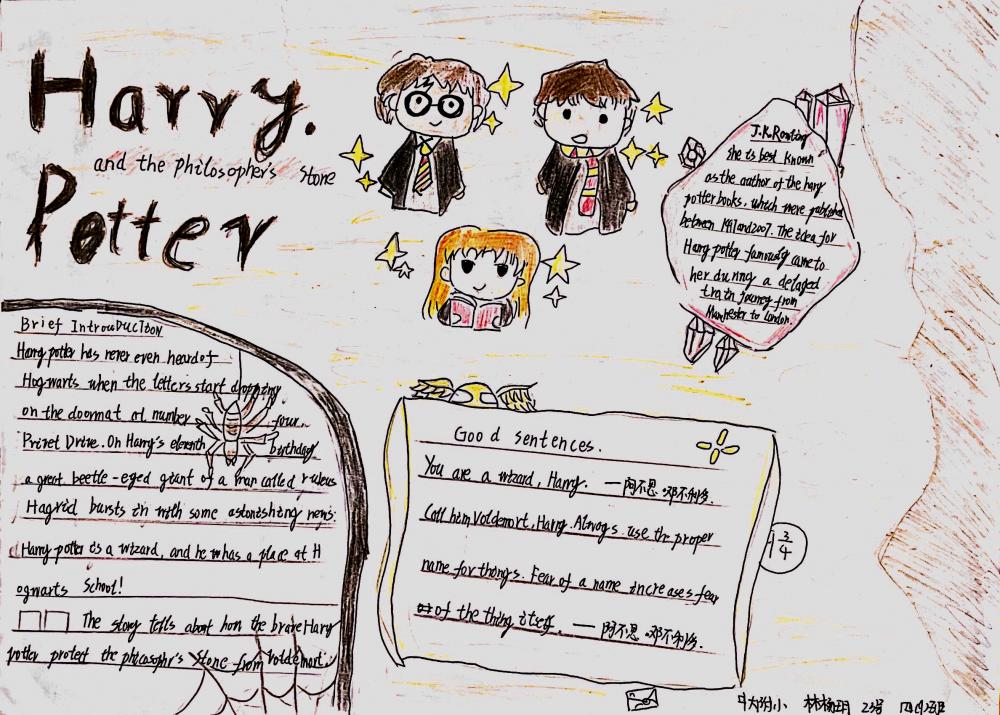 Harry.
and the philosopher's stone
Potter
J.K.Rowling
she is best known
as the author of the harry
potter books, which were published
between and 2007. The idea for
Harry potter famously came to
her during a delayed
train journey from
Manchester to London.
Brief Introduction
Harry potter has never even heard of
Hogwarts when the letters start dropping
on the doormat at number four.
Privet Drive. On Harry's eleventh birthday
a great beetle-eyed giant of a man called rubeus
Hagrid bursts in with some astonishing news:
Harry potter is a wizard, and he has a place at H
ogwarts School!
The story tells about how the brave Harry
potter protect the philosophr's Stone from Voldemort.
Good sentences.
You are a wizard, Harry. —阿不思.邓不利多.
Call him Voldemort, Harry. Always use the proper
name for things. Fear of a name increases fear
of the thing itself. —阿不思.邓不利多.
9 3/4
附小 林杨玥 23号 四(2)班